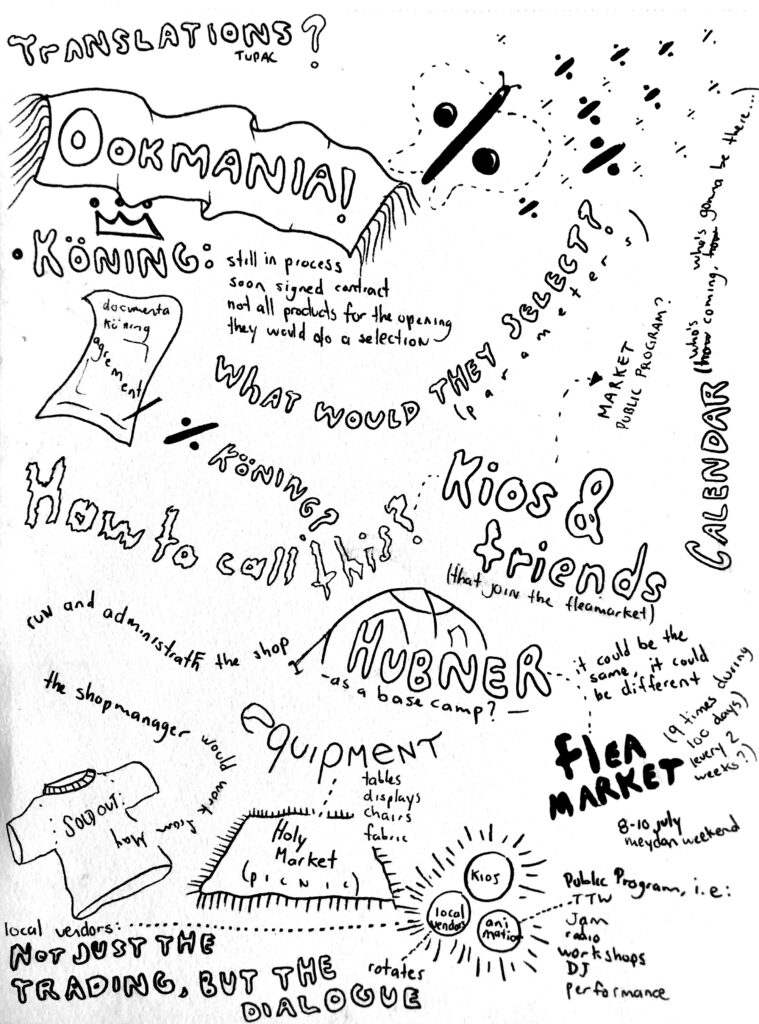 TRANSLATIONS?
TUPAC
OOKMANIA!
• KÖNING:
still in process
soon signed contract
not all products for the opening
they would do a selection
documenta
köning
agrement
WHAT WOULD THEY SELECT?
(parameters)
MARKET
PUBLIC PROGRAM?
CALENDAR (who's coming, who's gonna be there...)
% KÖNING?
How to call this?
Kios &
friends
(that join the fleamarket)
run and administrath the shop
HUBNER
-as a base camp? -
it could be the
same, it could
be different
the shopmanager would work from May
equipment
tables
displays
chairs
fabric
FLEA
MARKET
(9 times during
100 days)
(every 2
weeks?)
8-10 july
meydan weekend
SOLD OUT:
Holy
Market
(picnic)
KIOS
local
vendors
ani
mation
rotates
Public Program, i.e:
TTW
Jam
radio
workshops
DJ
performance
local vendors:
NOT JUST THE
TRADING, BUT THE
DIALOGUE